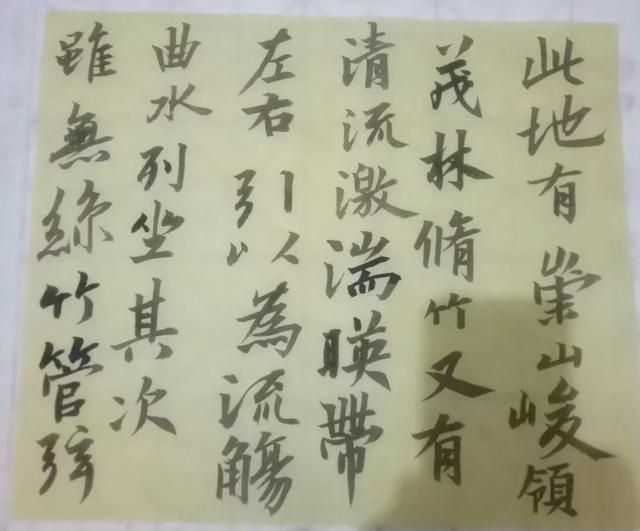 此地有崇山峻領
茂林脩竹又有
清流激湍暎帶
左右引以為流觴
曲水列坐其次
雖無絲竹管弦